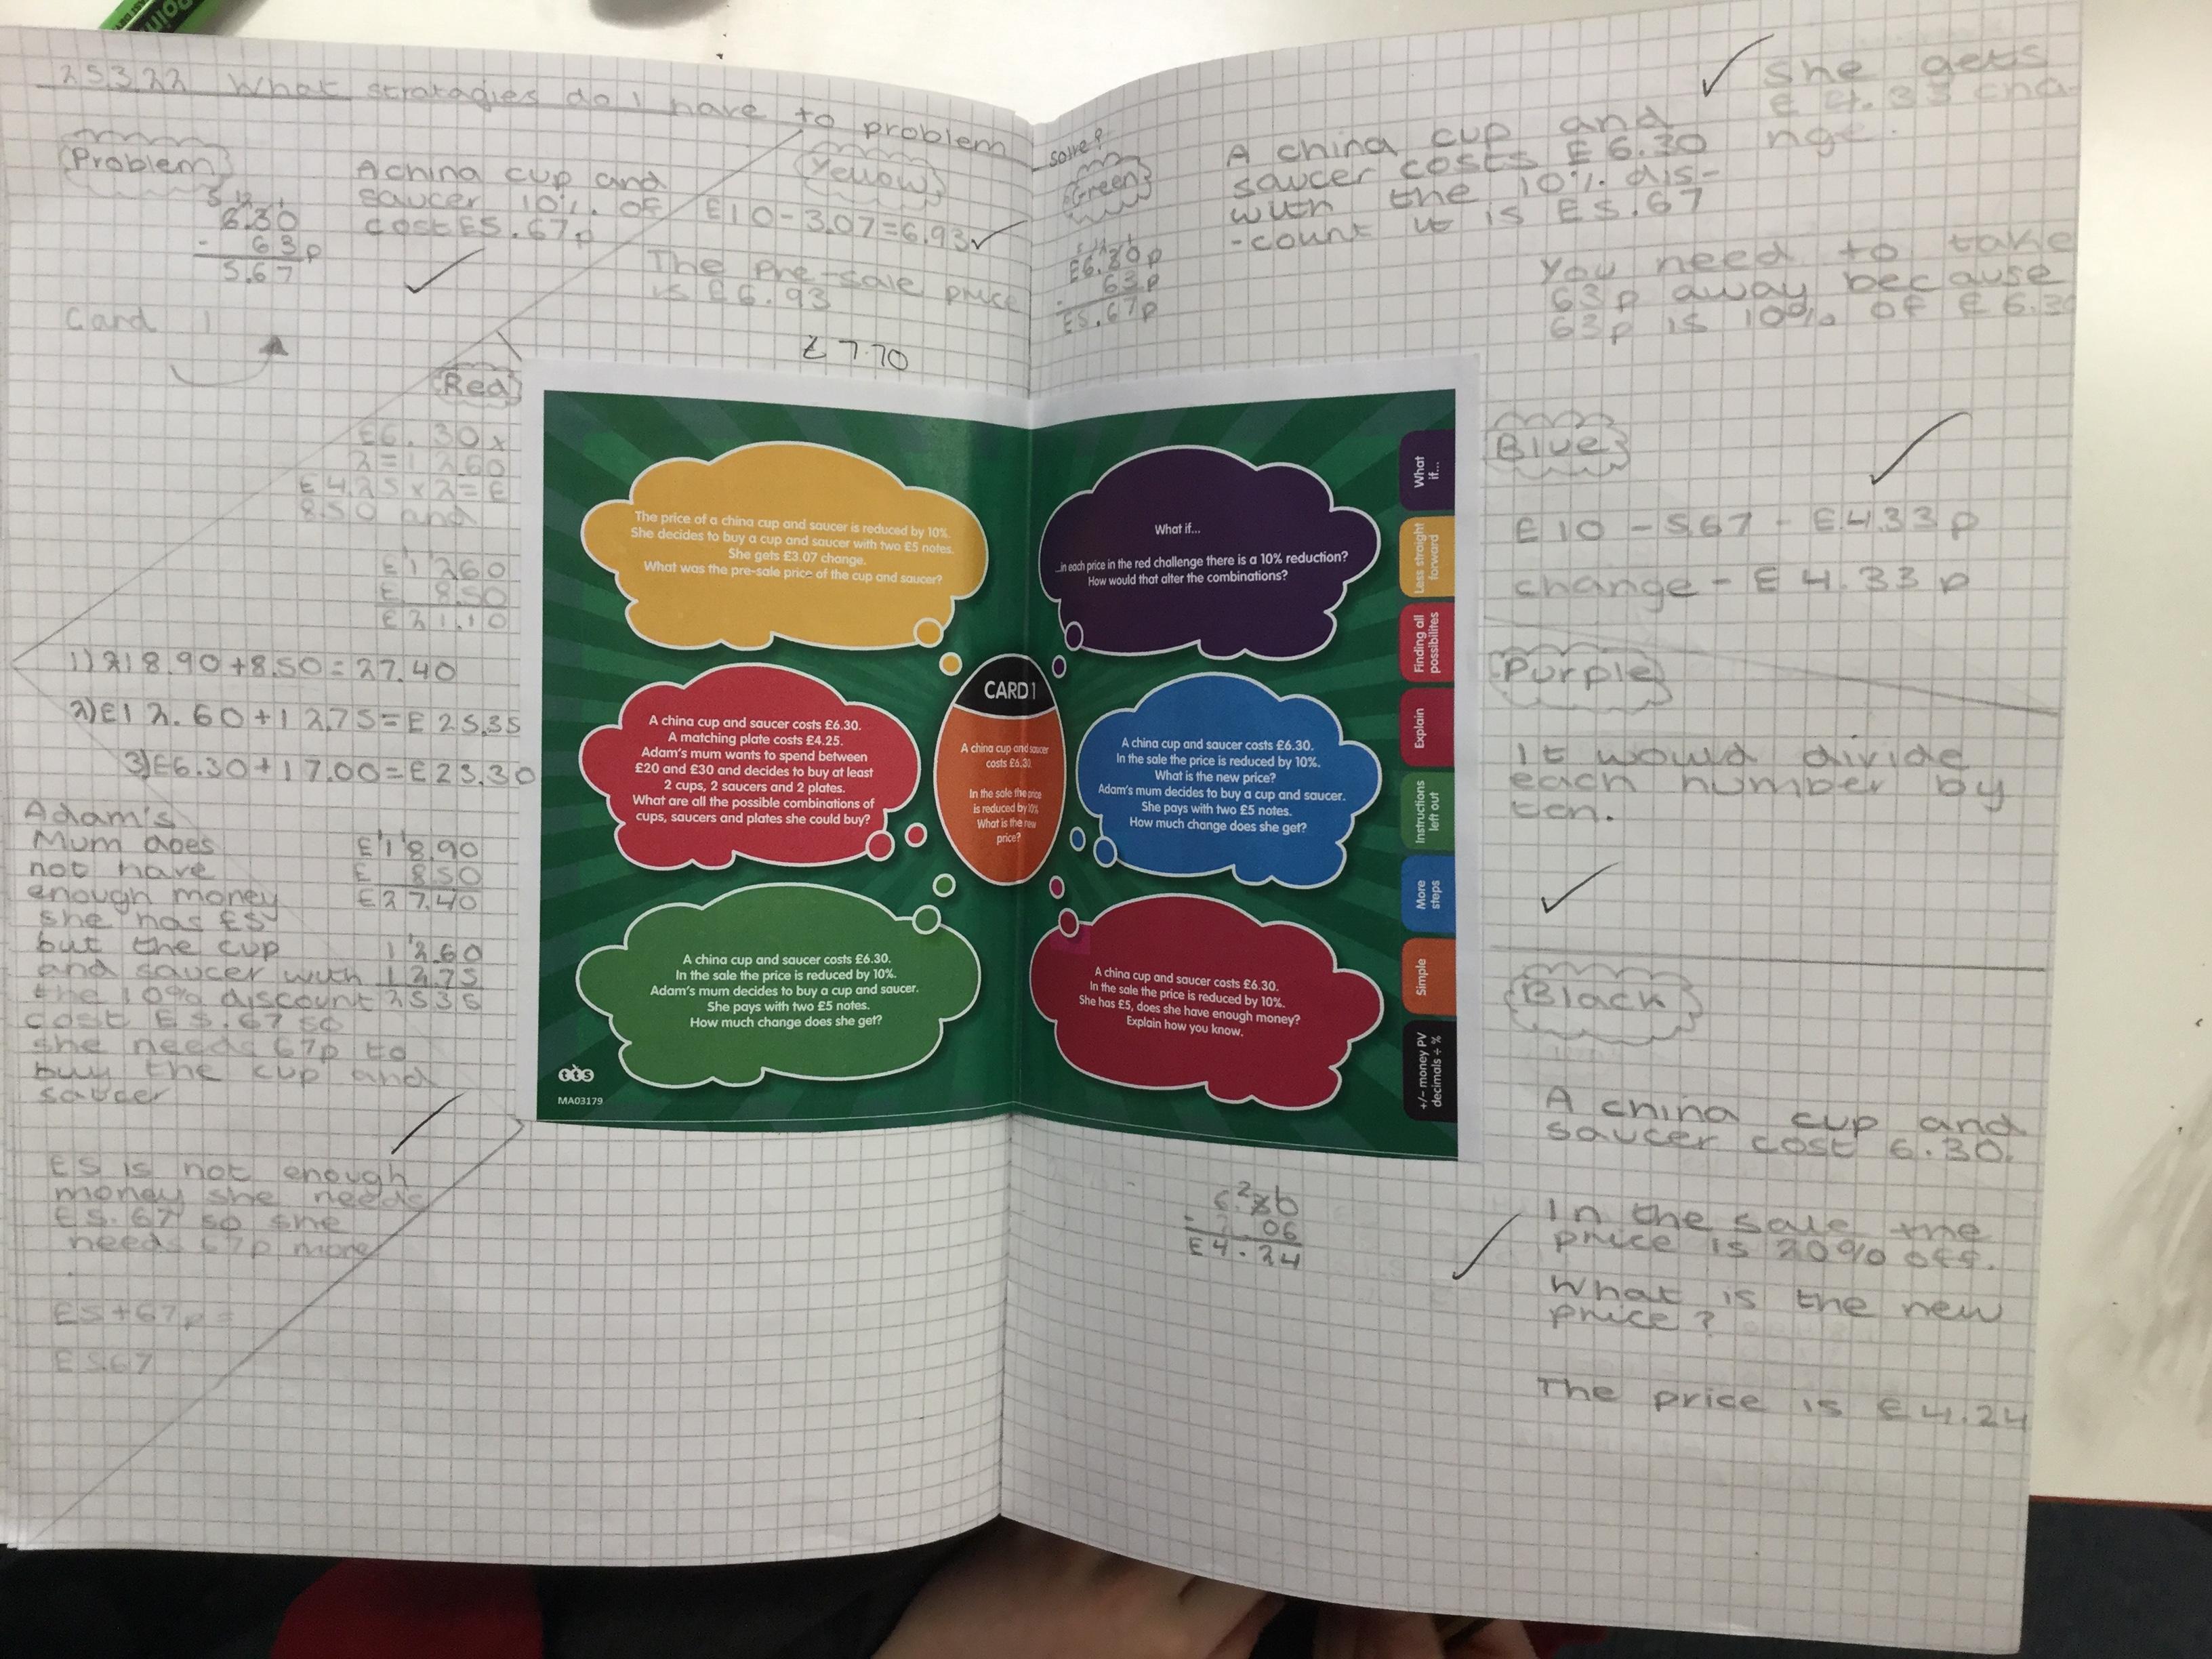 25.3.22 What stratagies do I have to problem
solve?
Problem
6.30
- 63p
5.67
A china cup and
saucer 10% of
cost £5.67p
Card 1
Yellow
£10-3.07=6.93
The pre-sale price
is £6.93
£7.70
Red
£6.30x
2=12.60
£4.25x2=£
8.50 and
£12.60
£ 8.50
£21.10
1) £18.90+8.50=27.40
2) £12.60+12.75=£25.35
3) £6.30+17.00=£23.30
£18.90
£ 8.50
£27.40
12.60
12.75
2535
Adam's
Mum does
not have
enough money
she has £5
but the cup
and saucer with
the 10% discount
cost £5.67 so
she needs 67p to
buy the cup and
saucer
£5 is not enough
money she needs
£5.67 so she
needs 67p more
£5+67p=
£5.67
The price of a china cup and saucer is reduced by 10%.
She decides to buy a cup and saucer with two £5 notes.
She gets £3.07 change.
What was the pre-sale price of the cup and saucer?
What if...
...in each price in the red challenge there is a 10% reduction?
How would that alter the combinations?
A china cup and saucer costs £6.30.
A matching plate costs £4.25.
Adam's mum wants to spend between
£20 and £30 and decides to buy at least
2 cups, 2 saucers and 2 plates.
What are all the possible combinations of
cups, saucers and plates she could buy?
CARD 1
A china cup and saucer
costs £6.30.
In the sale the price
is reduced by 10%
What is the new
price?
A china cup and saucer costs £6.30.
In the sale the price is reduced by 10%.
What is the new price?
Adam's mum decides to buy a cup and saucer.
She pays with two £5 notes.
How much change does she get?
A china cup and saucer costs £6.30.
In the sale the price is reduced by 10%.
Adam's mum decides to buy a cup and saucer.
She pays with two £5 notes.
How much change does she get?
A china cup and saucer costs £6.30.
In the sale the price is reduced by 10%.
She has £5, does she have enough money?
Explain how you know.
tts
MA03179
What
if...
Less straight
forward
Finding all
possibilites
Explain
Instructions
left out
More
steps
Simple
+/- money PV
decimals ÷ %
Green
£6.30p
- 63p
£5.67p
A china cup and
saucer costs £6.30
with the 10% dis-
-count it is £5.67
She gets
£4.33 cha-
nge.
You need to take
63p away because
63p is 10% of £6.30
Blue
£10 - 5.67 - £4.33p
change - £4.33p
Purple
It would divide
each number by
ten.
Black
A china cup and
saucer cost 6.30.
In the sale the
price is 20% off.
What is the new
price?
The price is £4.24
06
£4.24